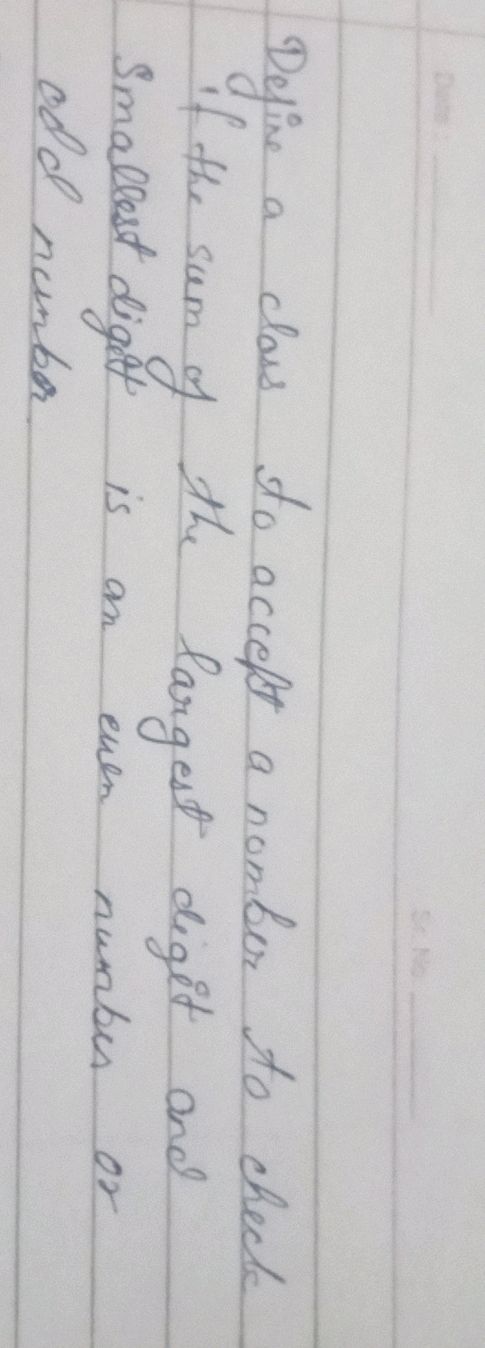 Date:
Sr. No.
Define a class to accept a number to check
if the sum of the largest digit and
Smallest digit is an even number or
odd number.